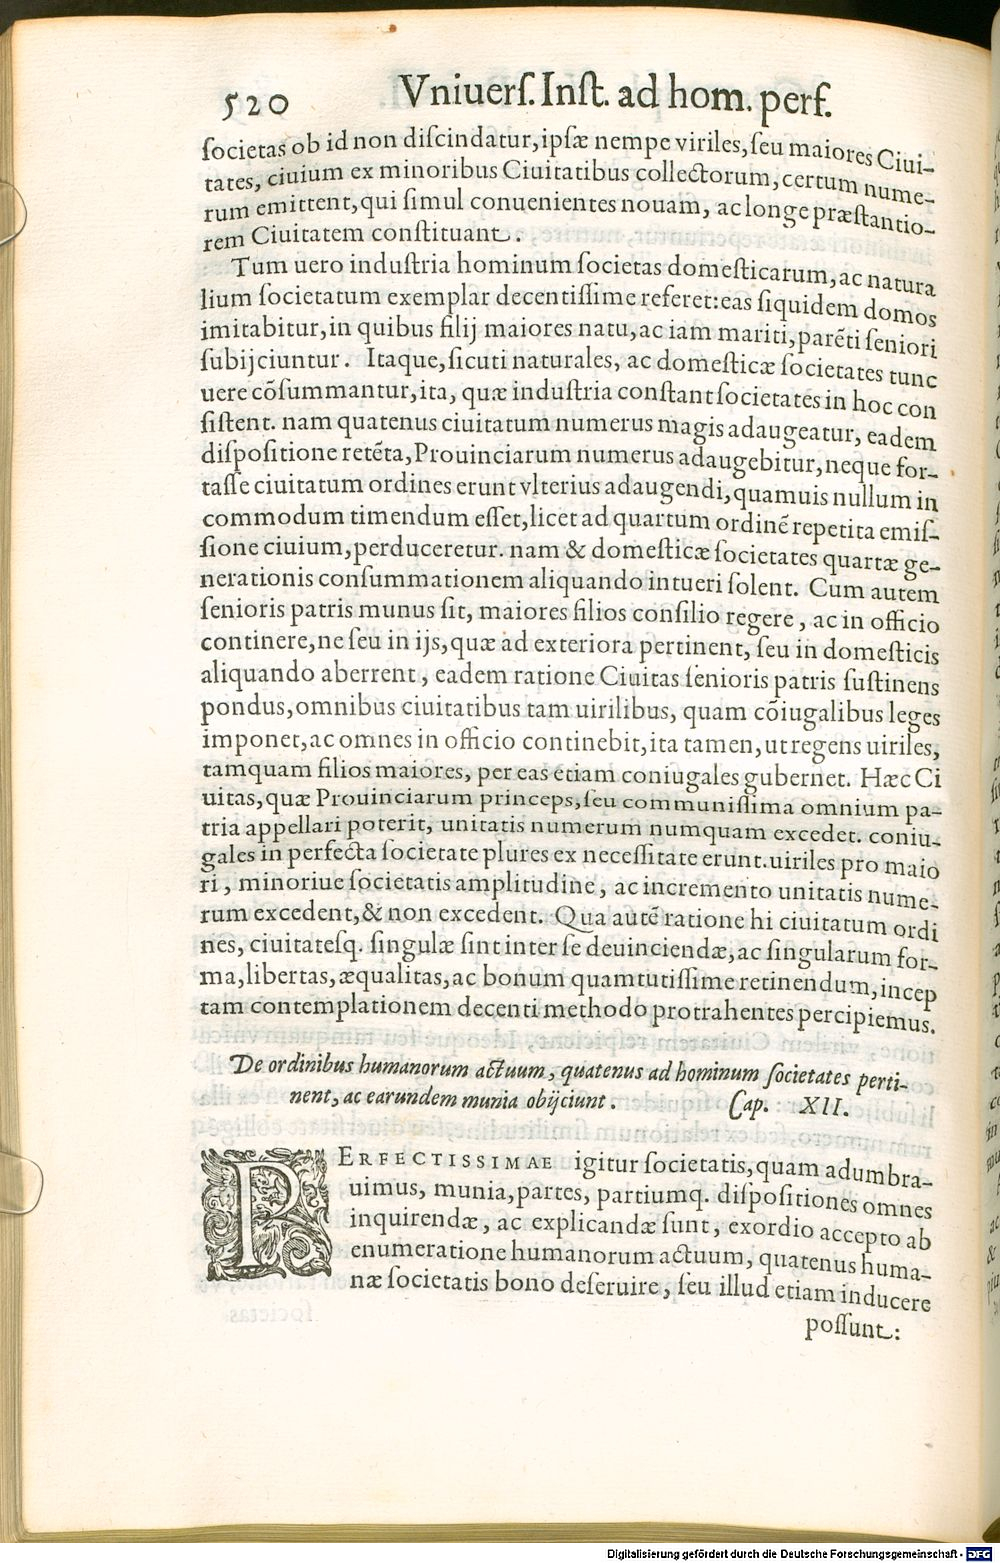 520 Vniuerſ. Inſt. ad hom. perf.
ſocietas ob id non diſcindatur, ipſæ nempe viriles, ſeu maiores Ciui-
tates, ciuium ex minoribus Ciuitatibus collectorum, certum nume-
rum emittent, qui ſimul conuenientes nouam, ac longe præſtantio-
rem Ciuitatem conſtituant.
Tum uero induſtria hominum ſocietas domeſticarum, ac natura
lium ſocietatum exemplar decentiſſime referet: eas ſiquidem domos
imitabitur, in quibus filij maiores natu, ac iam mariti, parẽti ſeniori
ſubijciuntur. Itaque, ſicuti naturales, ac domeſticæ ſocietates tunc
uere cõſummantur, ita, quæ induſtria conſtant ſocietates in hoc con
ſiſtent. nam quatenus ciuitatum numerus magis adaugeatur, eadem
diſpoſitione retẽta, Prouinciarum numerus adaugebitur, neque for-
taſſe ciuitatum ordines erunt vlterius adaugendi, quamuis nullum in
commodum timendum eſſet, licet ad quartum ordinẽ repetita emiſ-
ſione ciuium, perduceretur. nam & domeſticæ ſocietates quartæ ge-
nerationis conſummationem aliquando intueri ſolent. Cum autem
ſenioris patris munus ſit, maiores filios conſilio regere, ac in officio
continere, ne ſeu in ijs, quæ ad exteriora pertinent, ſeu in domeſticis
aliquando aberrent, eadem ratione Ciuitas ſenioris patris ſuſtinens
pondus, omnibus ciuitatibus tam uirilibus, quam cõiugalibus leges
imponet, ac omnes in officio continebit, ita tamen, ut regens uiriles,
tamquam filios maiores, per eas etiam coniugales gubernet. Hæc Ci
uitas, quæ Prouinciarum princeps, ſeu communiſſima omnium pa-
tria appellari poterit, unitatis numerum numquam excedet. coniu-
gales in perfecta ſocietate plures ex neceſſitate erunt. uiriles pro maio
ri, minoriue ſocietatis amplitudine, ac incremento unitatis nume-
rum excedent, & non excedent. Qua autẽ ratione hi ciuitatum ordi
nes, ciuitateſq. ſingulæ ſint inter ſe deuinciendæ, ac ſingularum for-
ma, libertas, æqualitas, ac bonum quam tutiſſime retinendum, incep
tam contemplationem decenti methodo protrahentes percipiemus.
De ordinibus humanorum actuum, quatenus ad hominum ſocietates perti-
nent, ac earundem munia obijciunt. Cap. XII.
PERFECTISSIMAE igitur ſocietatis, quam adumbra-
uimus, munia, partes, partiumq. diſpoſitiones omnes
inquirendæ, ac explicandæ ſunt, exordio accepto ab
enumeratione humanorum actuum, quatenus huma-
næ ſocietatis bono deſeruire, ſeu illud etiam inducere
poſſunt:
Digitalisierung gefördert durch die Deutsche Forschungsgemeinschaft - DFG